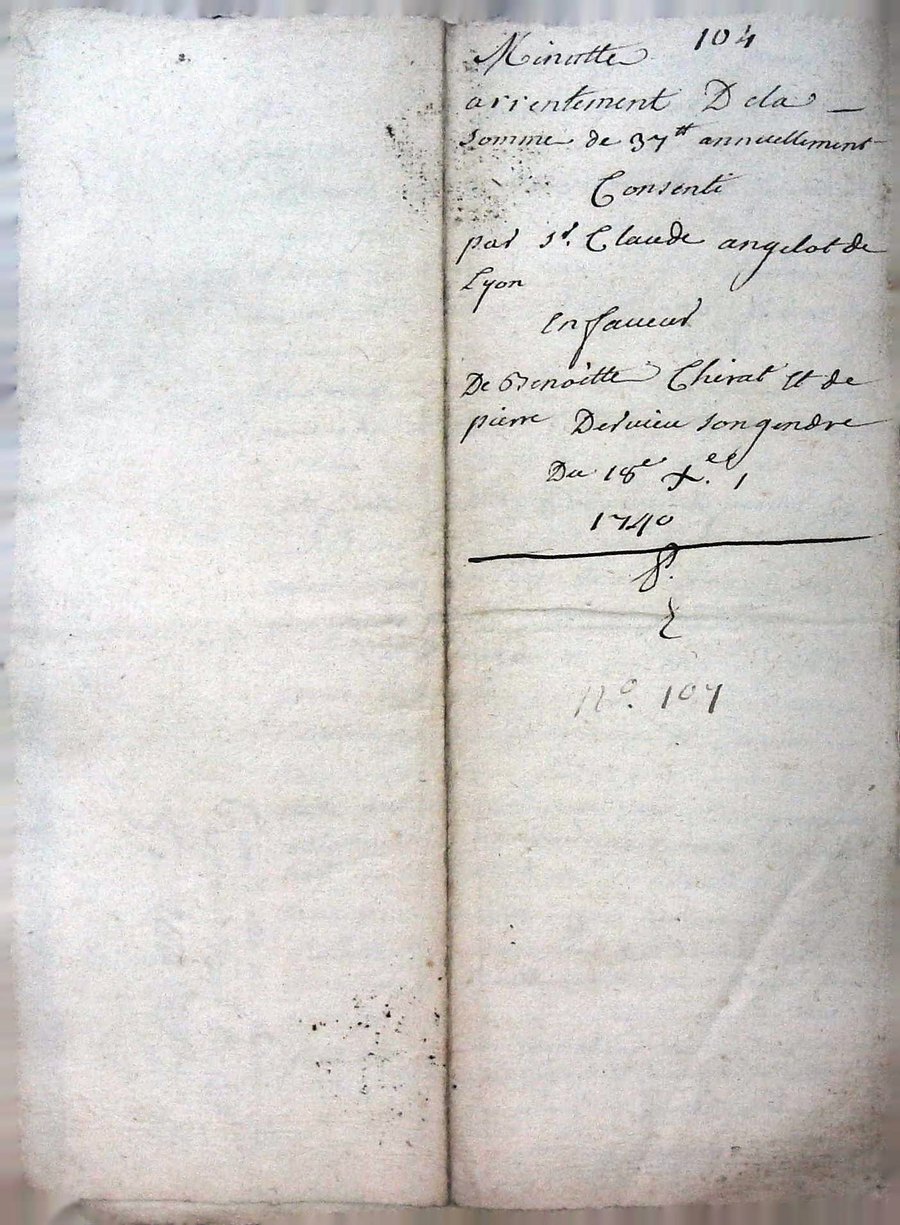 104
Minutte
arrentement Dela
Somme de 37tt annuellement
Consenti
par sr. Claude angelot de
Lyon
en faveur
De Benoitte Chirat et de
pierre Dervieu son gendre
Du 18e Xe.
1740
No. 107